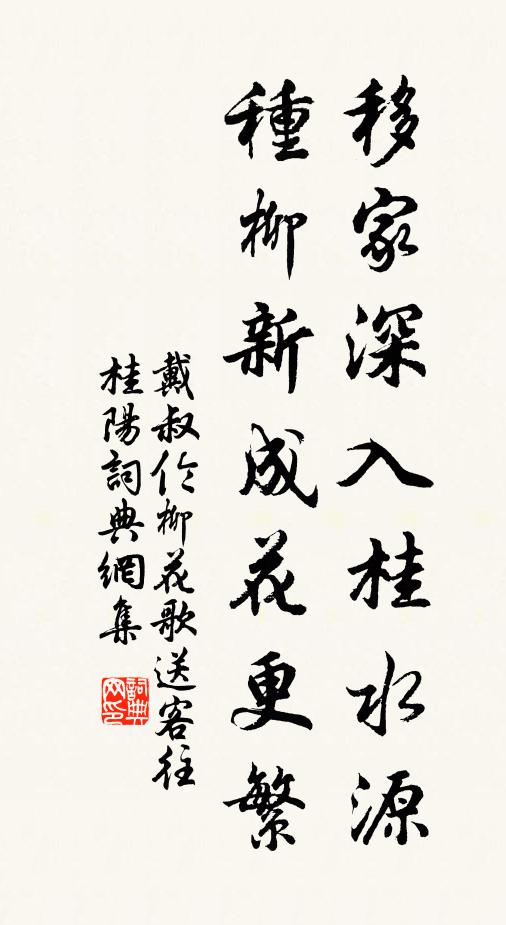 移家深入桂水源
種柳新成花更繁
戴叔伦柳花歌送客往
桂陽詞典網集
詞典网印